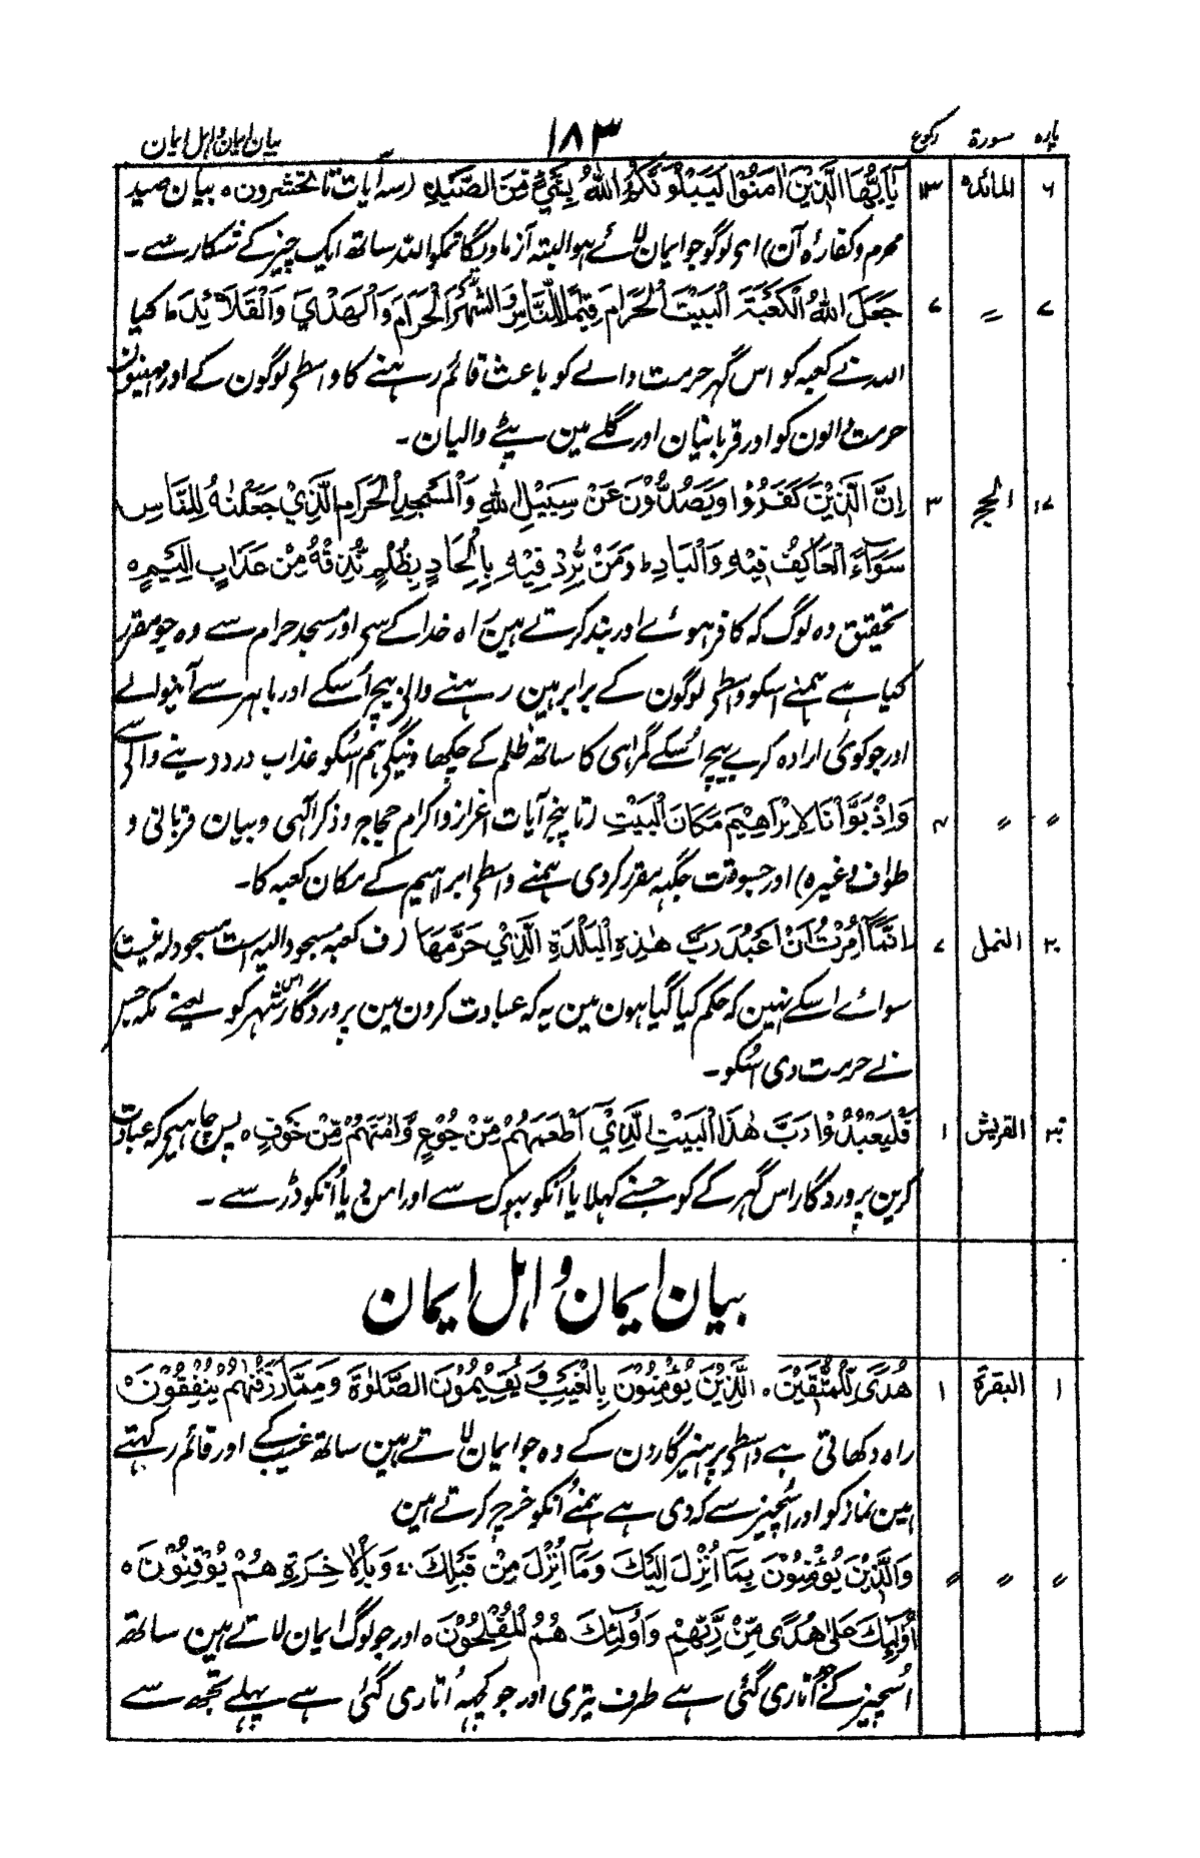 پارہ سورۃ رکوع ۱۸۳ بیان ایمان و اہل ایمان
۶ المائدہ ۱۳ يٰٓاَيُّهَا الَّذِيْنَ اٰمَنُوْا لَيَبْلُوَنَّكُمُ اللهُ بِشَيْءٍ مِّنَ الصَّيْدِ (سہ آیات تا تحشرون ہ بیان صید
محرم و کفارۂ آن) ای لوگو جو ایمان لائے ہو البتہ آزماویگا تمکو اللہ ساتھ ایک چیز کے شکار سے۔
۷ 〃 ۷ جَعَلَ اللهُ الْكَعْبَةَ الْبَيْتَ الْحَرَامَ قِيٰمًا لِّلنَّاسِ وَالشَّهْرَ الْحَرَامَ وَالْهَدْيَ وَالْقَلَآئِدَ ؕ کیا
اللہ نے کعبہ کو اس گہر حرمت والے کو باعث قائم رہنے کا واسطی لوگون کے اور مہینون
حرمت والون کو اور قربانیان اور گلے مین پٹے والیان۔
۱۷ الحج ۳ اِنَّ الَّذِيْنَ كَفَرُوْا وَيَصُدُّوْنَ عَنْ سَبِيْلِ اللهِ وَالْمَسْجِدِ الْحَرَامِ الَّذِيْ جَعَلْنٰهُ لِلنَّاسِ
سَوَآءً الْعَاكِفُ فِيْهِ وَالْبَادِ ؕ وَمَنْ يُّرِدْ فِيْهِ بِاِلْحَادٍ بِظُلْمٍ نُّذِقْهُ مِنْ عَذَابٍ اَلِيْمٍ ہ
تحقیق وہ لوگ کہ کافر ہوئے اور بند کرتے ہین راہ خدا کے سی اور مسجد حرام سے وہ جو مقرر
کیا ہے ہمنے اسکو واسطی لوگون کے برابر ہین رہنے والی بیچ اُسکے اور باہر سے آنیوالے
اور جو کوئی ارادہ کرے بیچ اُسکے گمراہی کا ساتھ ظلم کے چکھاوینگی ہم اُسکو عذاب درد دینے والی سے
〃 〃 ۴ وَاِذْ بَوَّاْنَا لِاِبْرَاهِيْمَ مَكَانَ الْبَيْتِ (تا پنج آیات اعزاز و اکرام حجاج و ذکر الٰہی و بیان قربانی و
طواف وغیرہ) اور جسوقت جگہہ مقرر کردی ہمنے واسطی ابراہیم کے مکان کعبہ کا۔
۲۰ النمل ۷ اِنَّمَآ اُمِرْتُ اَنْ اَعْبُدَ رَبَّ هٰذِهِ الْبَلْدَةِ الَّذِيْ حَرَّمَهَا (ف کعبہ مسجود الیہ است مسجود لہ نیست)
سوائے اسکے نہین کہ حکم کیا گیا ہون مین یہ کہ عبادت کرون مین پروردگار اس شہر کو یعنے مکہ جس
نے حرمت دی اسکو۔
۳۰ القریش ۱ فَلْيَعْبُدُوْا رَبَّ هٰذَا الْبَيْتِ الَّذِيْٓ اَطْعَمَهُمْ مِّنْ جُوْعٍ وَّاٰمَنَهُمْ مِّنْ خَوْفٍ ہ پس چاہیے کہ عبادت
کرین پروردگار اس گہر کے کو جسنے کہلایا اُنکو بہوک سے اور امن دیا اُنکو ڈر سے۔
بیان ایمان و اہل ایمان
۱ البقرۃ ۱ هُدًى لِّلْمُتَّقِيْنَ ہ الَّذِيْنَ يُؤْمِنُوْنَ بِالْغَيْبِ وَيُقِيْمُوْنَ الصَّلٰوةَ وَمِمَّا رَزَقْنٰهُمْ يُنْفِقُوْنَ ہ
راہ دکھاتی ہے واسطی پرہیزگارون کے وہ جو ایمان لاتے ہین ساتھ غیب کے اور قائم رکہتے
ہین نماز کو اور اُسچیز سے کہ دی ہے ہمنے اُنکو خرچ کرتے ہین
〃 〃 〃 وَالَّذِيْنَ يُؤْمِنُوْنَ بِمَآ اُنْزِلَ اِلَيْكَ وَمَآ اُنْزِلَ مِنْ قَبْلِكَ ۚ وَبِالْاٰخِرَةِ هُمْ يُوْقِنُوْنَ ہ
اُولٰٓئِكَ عَلٰى هُدًى مِّنْ رَّبِّهِمْ وَاُولٰٓئِكَ هُمُ الْمُفْلِحُوْنَ ہ اور جو لوگ ایمان لاتے ہین ساتھ
اُسچیز کے جو اُتاری گئی ہے طرف تیری اور جو کچہہ اُتاری گئی ہے پہلے تجھ سے